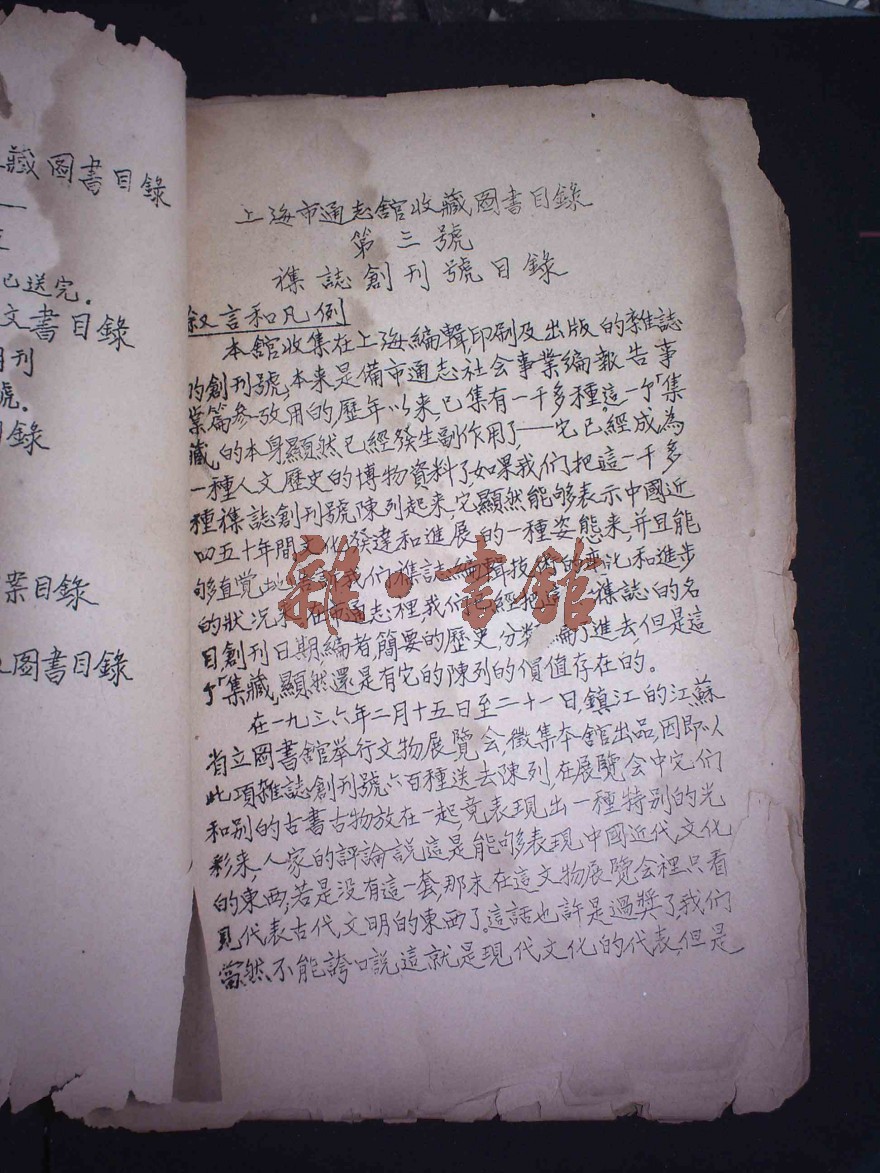 藏圖書目錄
已送完。
文書目錄
月刊
號。
目錄
案目錄
圖書目錄
上海市通志舘收藏圖書目錄
第三號
襍誌創刊號目錄
叙言和凡例
本舘收集在上海編輯印刷及出版的雜誌
的創刊號,本来是備市通志社会事業編報告事
業篇參攷用的,歷年以来,已集有一千多種,這一个「集
藏」的本身顯然已經發生副作用了——它已經成為
一種人文歷史的博物資料了如果我们把這一千多
種襍誌創刊號陳列起来,它顯然能够表示中國近
四五十年間文化發達和進展的一種姿態来,并且能
够直覚地告訴我们襍誌編輯技術的变化和進步
的狀况,在市通志裡,我们已經把這些襍誌的名
目創刊日期,編者,簡要的歷史,分类編了進去,但是這
个「集藏」顯然還是有它的陳列的價值存在的。
在一九三六年二月十五日至二十一日,鎮江的江蘇
省立圖書舘举行文物展覽会,徵集本舘出品,因即以
此项雜誌創刊號六百種送去陳列,在展覽会中它们
和别的古書古物放在一起,竟表現出一種特别的光
彩来,人家的評論説這是能够表現中國近代文化
的東西,若是没有這一套,那末在這文物展覽会裡只看
見代表古代文明的東西了。這話也許是過獎了,我们
當然不能誇口説這就是現代文化的代表,但是
雜·書館